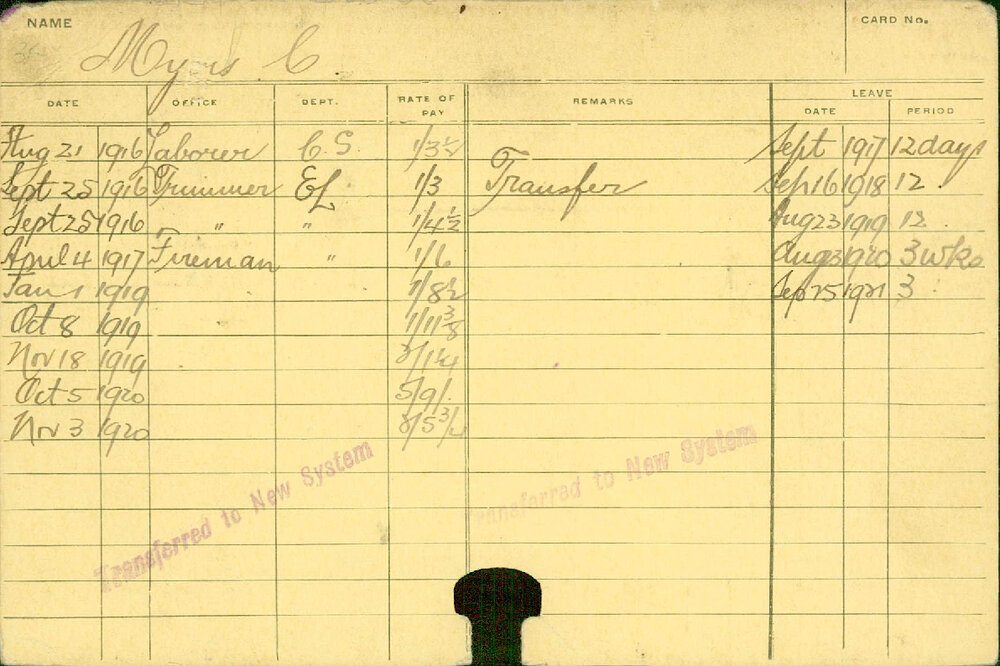 NAME
CARD No.
Myers C.
DATE OFFICE DEPT. RATE OF PAY REMARKS LEAVE
DATE PERIOD
Aug 21 1916 Laborer C.S. 1/3½ Sept 1917 12 days
Sept 25 1916 Trimmer EL 1/3 Transfer Sep 16 1918 12
Sept 25 1916 " " " 1/4½ Aug 23 1919 12
April 4 1917 Fireman " 1/6 Aug 3 1920 3 wks
Jan 1 1919 1/8½ Sep 25 1921 3
Oct 8 1919 1/11⅜
Nov 18 1919
Oct 5 1920 5/9/.
Nov 3 1920
Transferred to New System
Transferred to New System